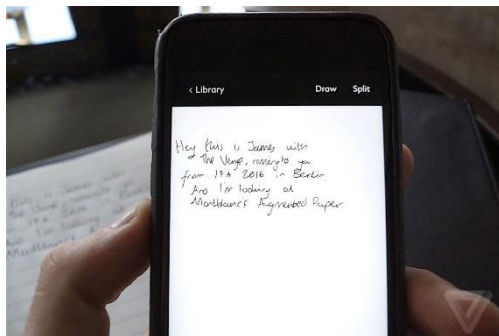 < Library Draw Split
Hey this is James with
The Verge, coming to you
from IFA 2016 in Berlin
And I'm looking at
Montblanc's Augmented Paper